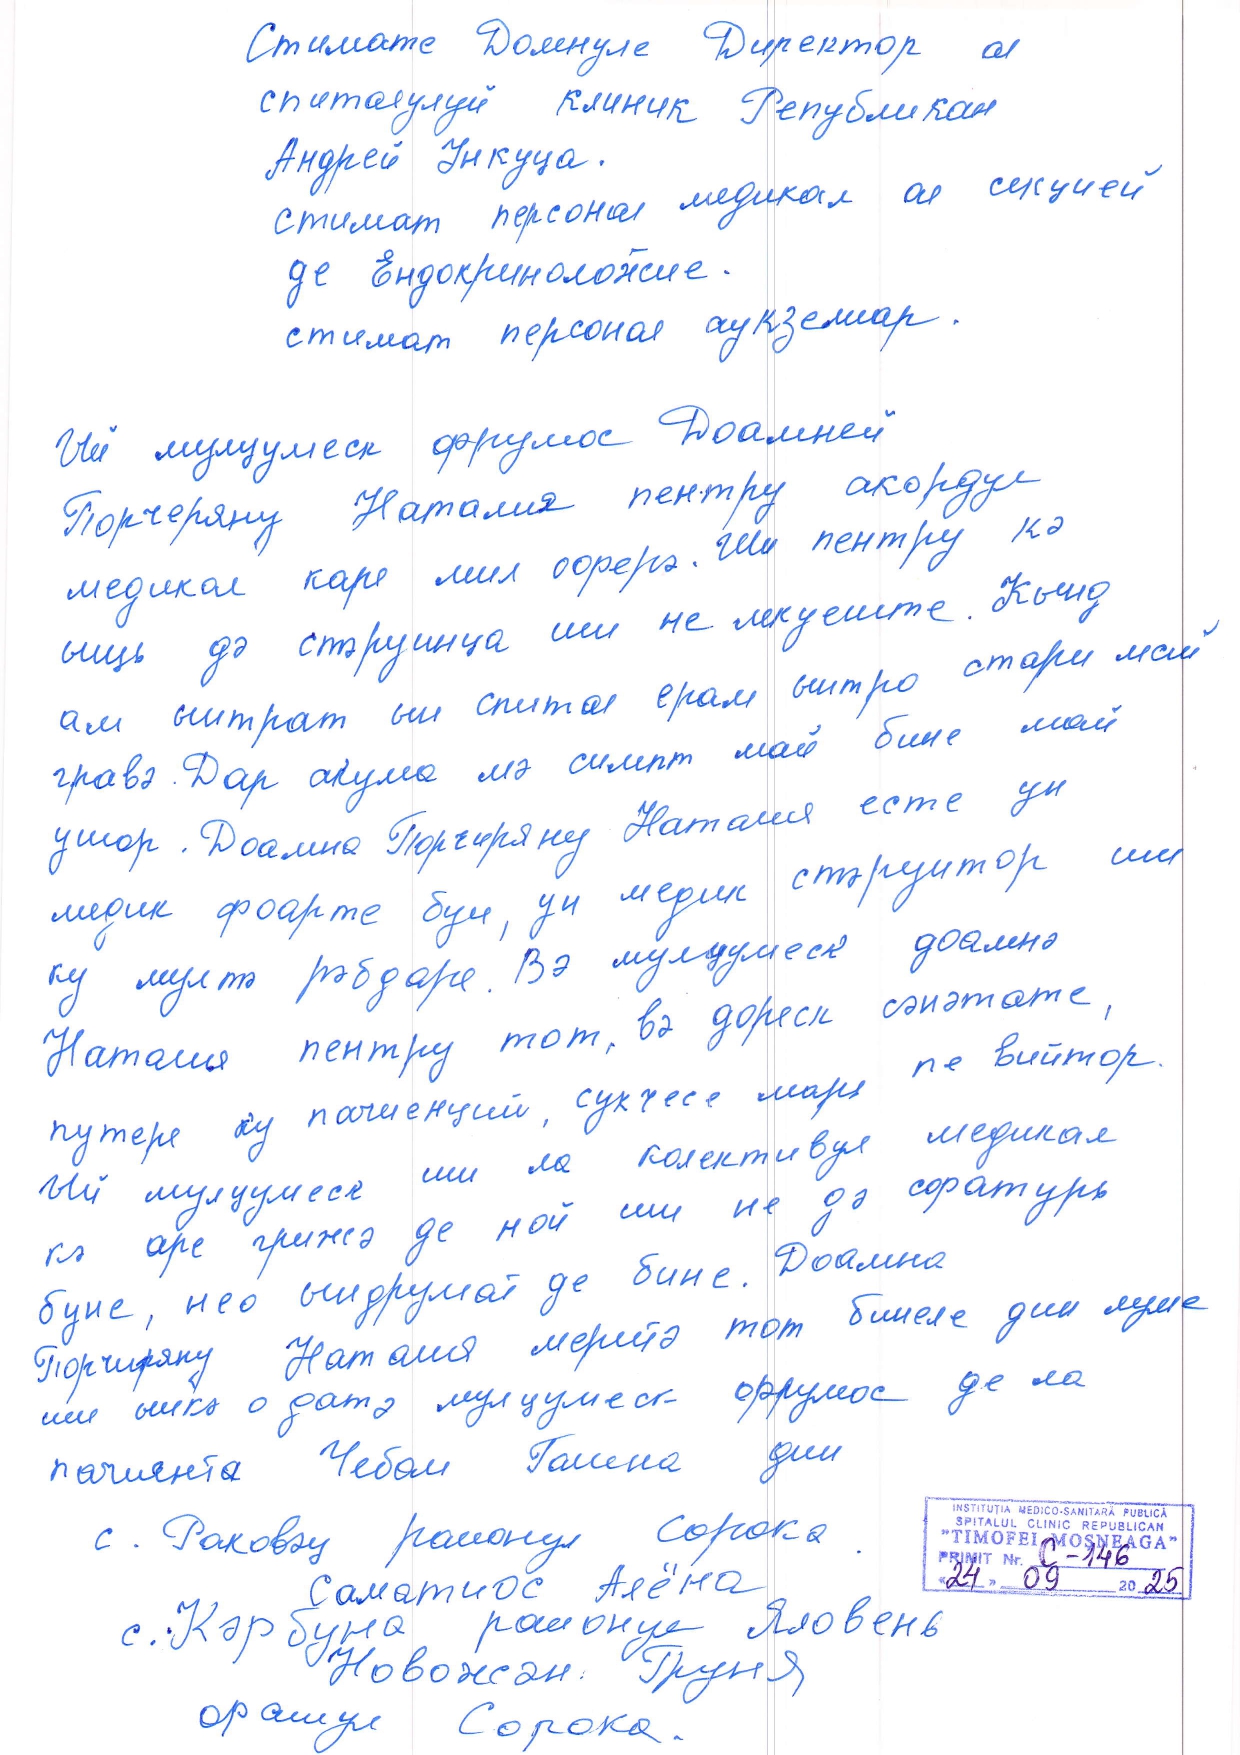 Стимате Домнуле Директор ал
спиталулуй клиник Републикан
Андрей Ункуца.
стимат персонал медикал ал секцией
де Ендокриноложие.
стимат персонал аукзелиар.
Ый мулцумеск фрумос Доамней
Порчеряну Наталия пентру акордул
медикал каре мил оферэ. Ши пентру кэ
ышь дэ стэруинца ши не лекуеште. Кынд
ам ынтрат ын спитал ерам ынтро стари май
гравэ. Дар акума мэ симпт май бине май
ушор. Доамна Порчиряну Наталия есте ун
медик фоарте бун, ун медик стэруитор ши
ку мултэ рэбдаре. Вэ мулцумеск доамнэ
Наталия пентру тот, вэ дореск сэнэтате,
путере ку пачиенций, сукчесе марь пе виитор.
Ый мулцумеск ши ла колективул медикал
кэ аре грижэ де ной ши не дэ сфатурь
буне, нео ындрумат де бине. Доамна
Порчиряну Наталия меритэ тот бинеле дин луме
ши ынкэ о датэ мулцумеск фрумос де ла
пачиента Чебан Галина дин
с. Раковэц районул Сорока.
Саматиос Алёна
с. Кэрбуна районул Яловень
Новожан. Груня
орашул Сорока.
INSTITUȚIA MEDICO-SANITARĂ PUBLICĂ
SPITALUL CLINIC REPUBLICAN
"TIMOFEI MOȘNEAGA"
PRIMIT Nr. C-146
"24" 09 2025